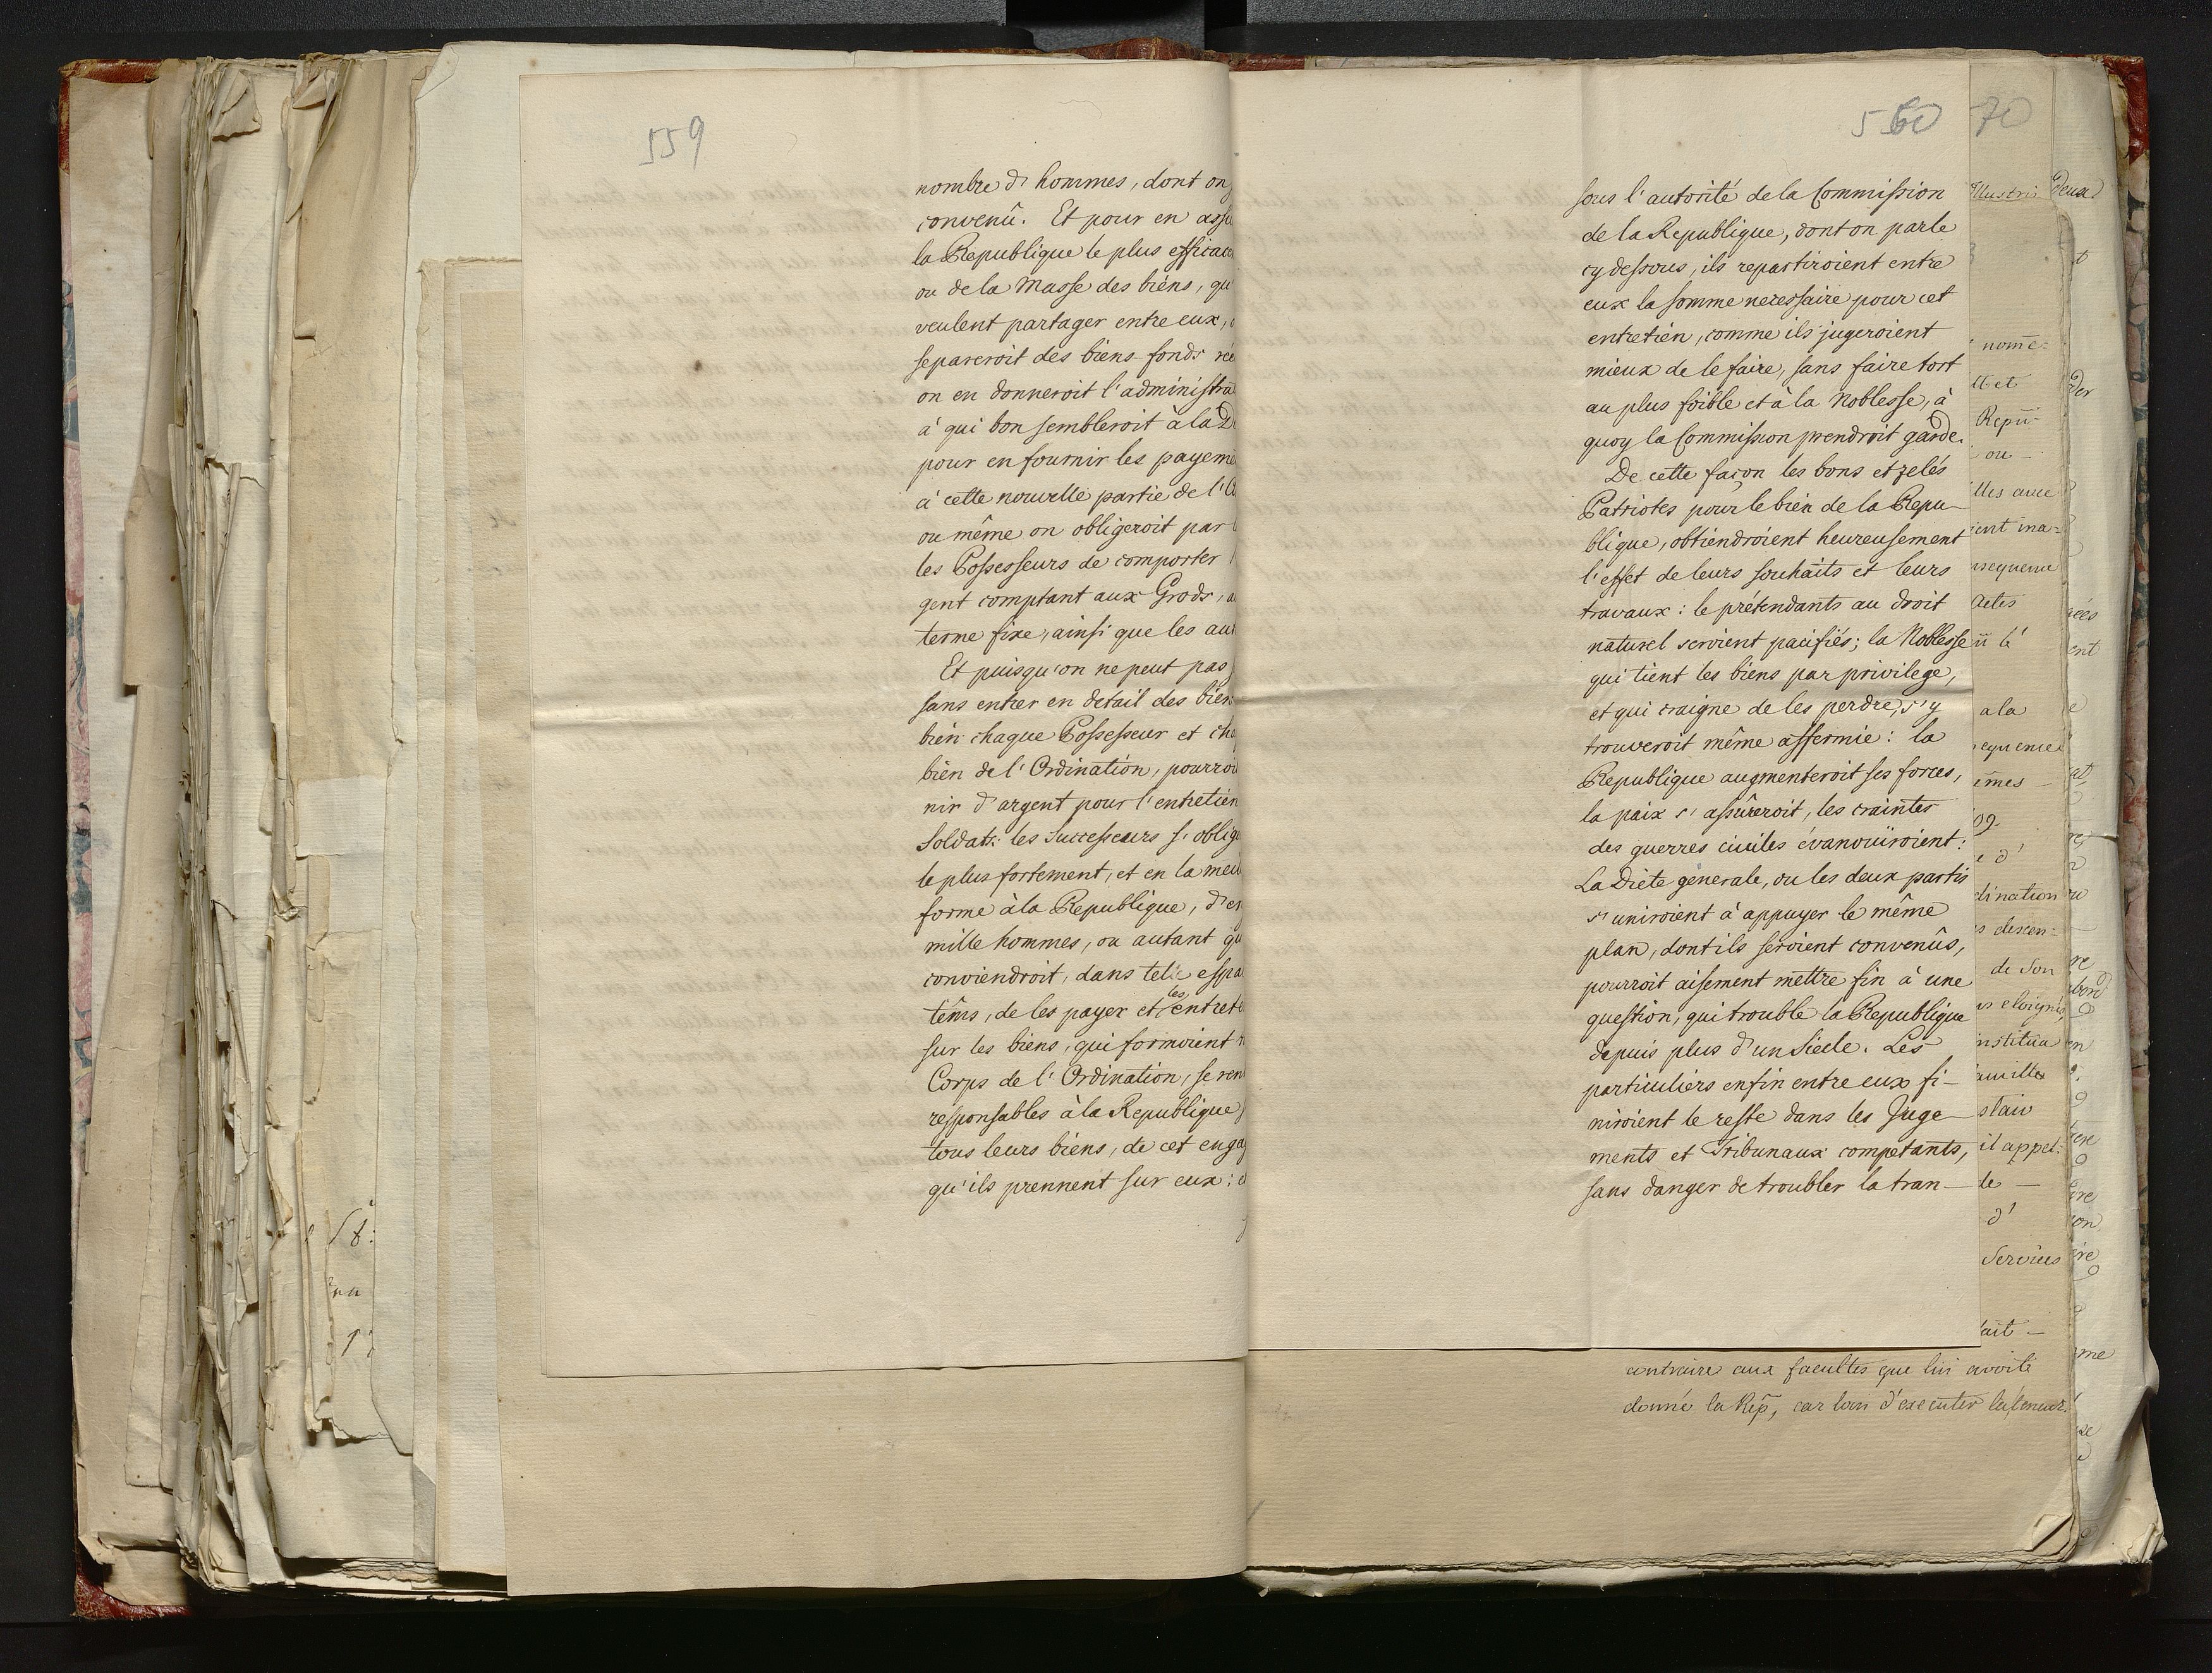 559
nombre d'hommes, dont on
convenû. Et pour en assu
la Republique le plus efficace
ou de la Masse des biens, qu'
veulent partager entre eux,
separeroit des biens-fonds rée
on en donneroit l'administra
à qui bon sembleroit à la D
pour en fournir les payeme
à cette nouvelle partie de l'
ou même on obligeroit par
les Possesseurs de comporter
gent comptant aux Grods, a
terme fixe, ainsi que les aut
Et puisqu'on ne peut pas
sans entrer en detail des bien
bien chaque Possesseur et cha
bien de l'Ordination, pourroi
nir d'argent pour l'entretien
Soldats: les Successeurs s'oblig
le plus fortement, et en la meil
forme à la Republique, d'en
mille hommes, ou autant qu
conviendroit, dans tel espa
têms, de les payer et les entrete
sur les biens, qui formoient
Corps de l'Ordination, se ren
responsables à la Republique,
tous leurs biens, de cet engag
qu'ils prennent sur eux: e
560
sous l'autorité de la Commission
de la Republique, dont on parle
cy dessous, ils repartiroient entre
eux la somme necessaire pour cet
entretien, comme ils jugeroient
mieux de le faire, sans faire tort
au plus foible et à la Noblesse, à
quoy la Commission prendroit garde.
De cette façon les bons et zelés
Patriotes pour le bien de la Repu-
blique, obtiendroient heureusement
l'effet de leurs souhaits et leurs
travaux: le prétendants au droit
naturel seroient pacifiés; la Noblesse
qui tient les biens par privilege,
et qui craigne de les perdre, s'y
trouveroit même affermie: la
Republique augmenteroit ses forces,
la paix s'assûreroit, les craintes
des guerres civiles évanouïroient:
La Diete generale, ou les deux partis
s'uniroient à appuyer le même
plan, dont ils seroient convenûs,
pourroit aisement mettre fin à une
question, qui trouble la Republique
depuis plus d'un Siecle. Les
particuliers enfin entre eux fi-
niroient le reste dans les Juge-
ments et Tribunaux competants,
sans danger de troubler la tran-
70
Illustris
nomē-
tt et
Repū-
ou -
lles avec
ient ina-
nsequence
Actes
a la
equence
ēmes -
e d'
dination
s descen-
de Son
s eloignés,
nstitua
amille
it appel-
le -
d'
Services
fait -
contraire aux facultés que lui avoit
donné la Rēp, car loin d'executer la teneur
deux